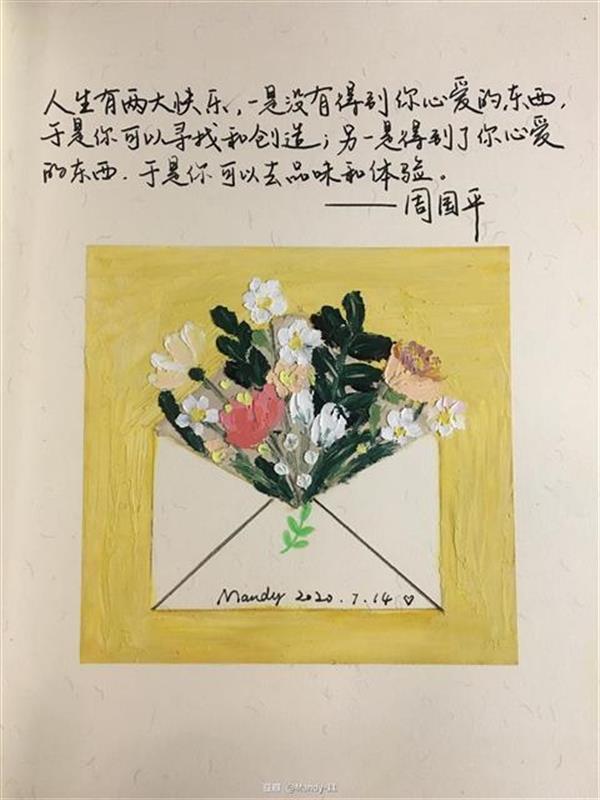 人生有两大快乐,一是没有得到你心爱的东西,
于是你可以寻找和创造;另一是得到了你心爱
的东西.于是你可以去品味和体验。
——周国平
Mandy 2020.7.14♡
豆瓣 @Mandy-II